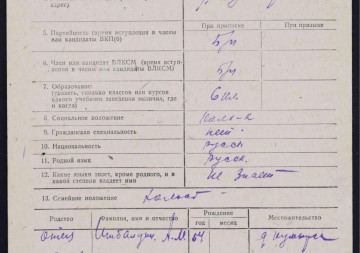 адрес)
При приписке При призыве
5. Партийность (время вступления в члены
или кандидаты ВКП(б)
б/п
6. Член или кандидат ВЛКСМ (время вступ-
ления в члены или кандидаты ВЛКСМ)
б/п
7. Образование:
(указать, сколько классов или курсов
какого учебного заведения окончил, где
и когда)
8. Социальное положение
9. Гражданская специальность
нет
10. Национальность
русск
11. Родной язык
русск.
12. Какие языки знает, кроме родного, и в
какой степени владеет ими
не знает
13. Семейное положение
холост
Родство Фамилия, имя и отчество Рождение Местожительство
год месяц
отец А.М. 64